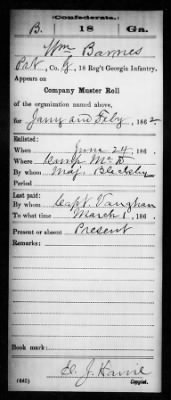 Confederate.
B. 18 Ga.
Wm Barnes
Pvt, Co. , 18 Reg't Georgia Infantry,
Appears on
Company Muster Roll
of the organization named above,
for Jany and Feby, 1862
Enlisted:
When June 24, 186
Where Camp McD
By whom Maj.
Period
Last paid:
By whom Capt. Vaughan
To what time March 1, 186
Present or absent Present
Remarks:
Book mark:
(642) E. J. Copyist.